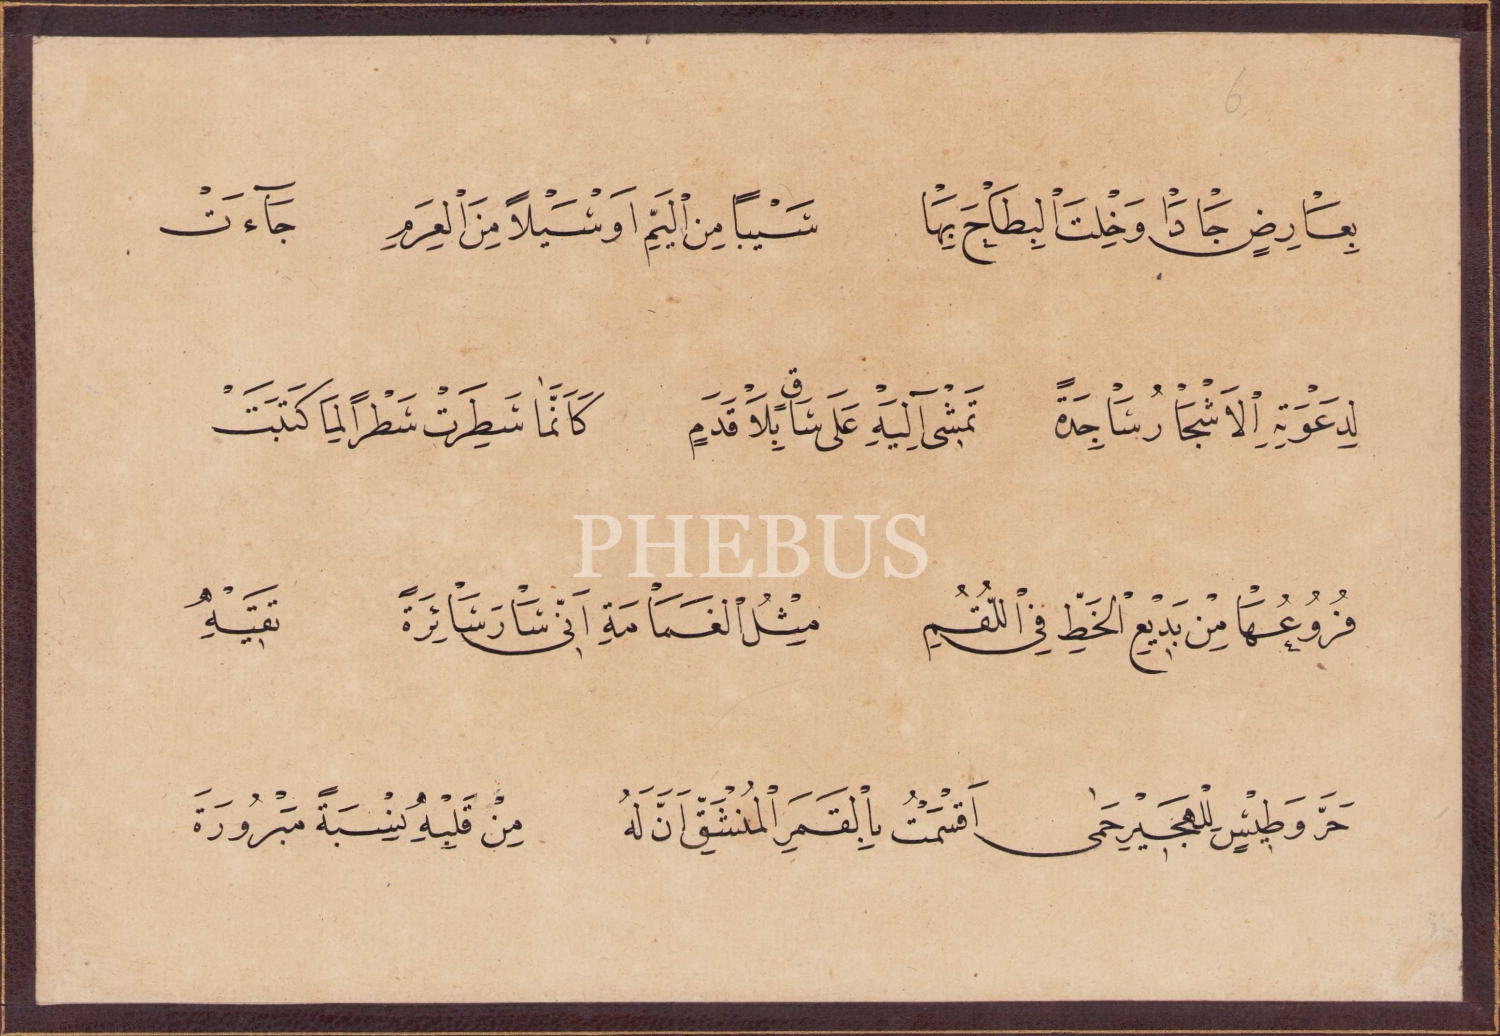 6
بِعَارِضٍ جَادَ وَخِلْتَ الْبِطَاحَ بِهَا سَيْبًا مِنَ الْيَمِّ اَوْ سَيْلاً مِنَ الْعَرِمِ جَآءَتْ
لِدَعْوَتِهِ الْاَشْجَارُ سَاجِدَةً تَمْشٖى اِلَيْهِ عَلَى سَاقٍ بِلَا قَدَمٍ كَاَنَّمَا سَطَرَتْ سَطْرًا لِمَا كَتَبَتْ
PHEBUS
فُرُوعُهَا مِنْ بَدٖيعِ الْخَطِّ فِى اللَّقَمِ مِثْلُ الْغَمَامَةِ اَنّٖى سَارَ سَائِرَةً تَقٖيهِ
حَرَّ وَطٖيسٍ لِلْهَجٖيرِ حَمٰى اَقْسَمْتُ بِالْقَمَرِ الْمُنْشَقِّ اَنَّ لَهُ مِنْ قَلْبِهِ نِسْبَةً مَبْرُورَةَ